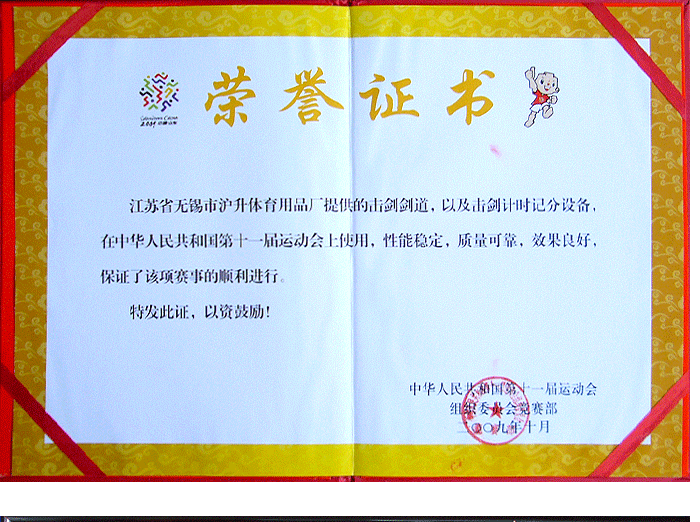 荣誉证书
2009 中国山东
江苏省无锡市沪升体育用品厂提供的击剑剑道，以及击剑计时记分设备，
在中华人民共和国第十一届运动会上使用，性能稳定，质量可靠，效果良好，
保证了该项赛事的顺利进行。
特发此证，以资鼓励！
中华人民共和国第十一届运动会
组织委员会竞赛部
二〇〇九年十月